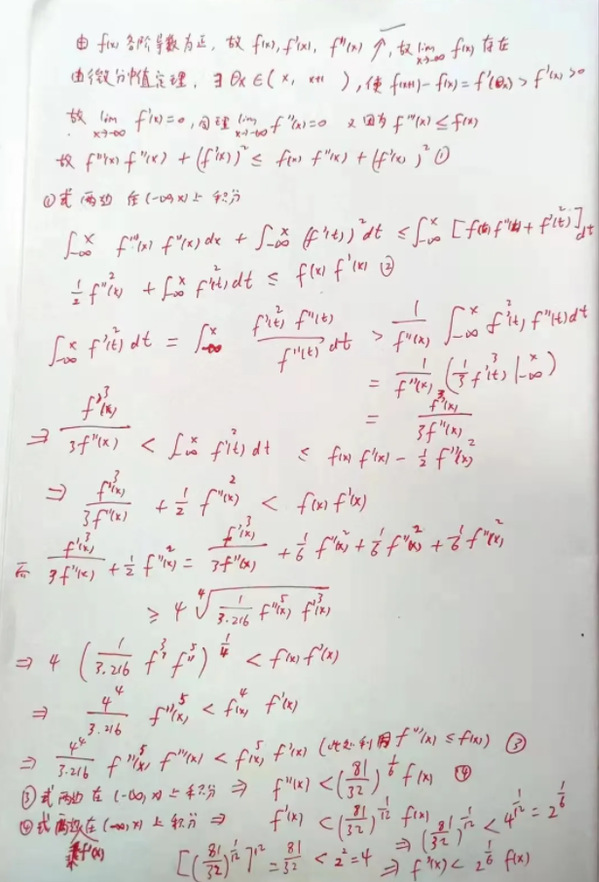 由 f(x) 各阶导数为正, 故 f(x), f'(x), f''(x) ↑, 故 lim_{x→-∞} f(x) 存在
由微分中值定理, ∃ θx ∈ (x, x+1), 使 f(x+1) - f(x) = f'(θx) > f'(x) > 0
故 lim_{x→-∞} f'(x) = 0, 同理 lim_{x→-∞} f''(x) = 0 又因为 f'''(x) ≤ f(x)
故 f'''(x) f''(x) + (f'(x))^2 ≤ f(x) f''(x) + (f'(x))^2 ①
①式 两边 在 (-∞, x) 上 积分
∫_{-∞}^{x} f'''(x) f''(x) dx + ∫_{-∞}^{x} (f'(t))^2 dt ≤ ∫_{-∞}^{x} [f(t) f''(t) + f'(t)^2] dt
1/2 f''(x)^2 + ∫_{-∞}^{x} f'(t)^2 dt ≤ f(x) f'(x) ②
∫_{-∞}^{x} f'(t)^2 dt = ∫_{-∞}^{x} f'(t)^2 f''(t) / f''(t) dt > 1/f''(x) ∫_{-∞}^{x} f'(t)^2 f''(t) dt
= 1/f''(x) (1/3 f'(t)^3 |_{-∞}^{x})
= f'(x)^3 / 3f''(x)
⇒ f'(x)^3 / 3f''(x) < ∫_{-∞}^{x} f'(t)^2 dt ≤ f(x) f'(x) - 1/2 f''(x)^2
⇒ f'(x)^3 / 3f''(x) + 1/2 f''(x)^2 < f(x) f'(x)
而 f'(x)^3 / 3f''(x) + 1/2 f''(x)^2 = f'(x)^3 / 3f''(x) + 1/6 f''(x)^2 + 1/6 f''(x)^2 + 1/6 f''(x)^2
≥ 4 ∜(1/3·216 f''(x)^5 f'(x)^3)
⇒ 4 (1/3·216 f'^3 f''^5)^{1/4} < f(x) f'(x)
⇒ 4^4/3·216 f''(x)^5 < f(x)^4 f'(x)
⇒ 4^4/3·216 f''(x)^5 f'''(x) < f(x)^5 f'(x) (此处利用 f'''(x) ≤ f(x)) ③
③式两边在 (-∞, x) 上积分 ⇒ f''(x) < (81/32)^{1/6} f(x) ④
④式两边在 (-∞, x) 上积分 ⇒ f'(x) < (81/32)^{1/12} f(x)
f'(x) ⇒ (81/32)^{1/12} < 4^{1/12} = 2^{1/6}
[(81/32)^{1/12}]^{12} = 81/32 < 2^2 = 4 ⇒ f'(x) < 2^{1/6} f(x)